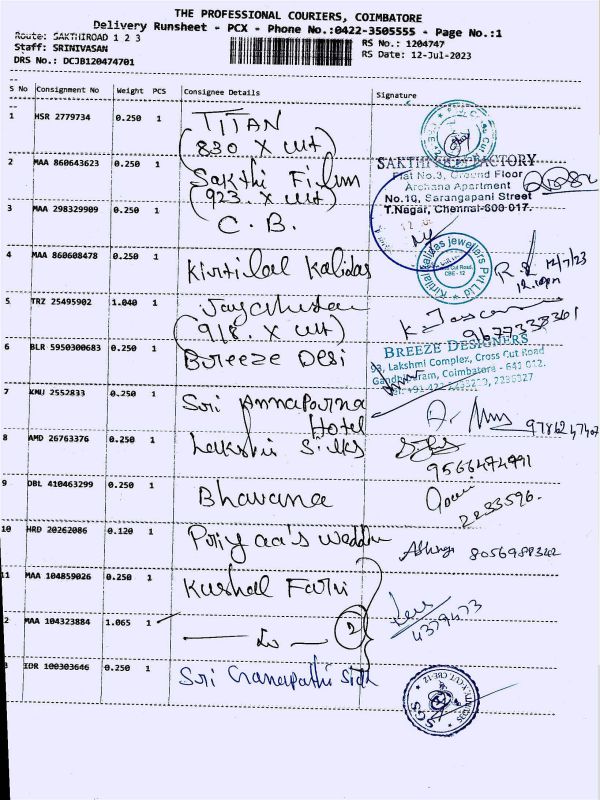 THE PROFESSIONAL COURIERS, COIMBATORE
Delivery Runsheet - PCX - Phone No.:0422-3505555 - Page No.:1
Route: SAKTHIROAD 1 2 3
Staff: SRINIVASAN
DRS No.: DCJB120474701
RS No.: 1204747
RS Date: 12-Jul-2023
S No Consignment No Weight PCS Consignee Details Signature
1 HSR 2779734 0.250 1 TITAN
(830 X cut)
2 MAA 860643623 0.250 1 Sakthi Film
(923. X cut)
SAKTHI FACTORY
Flat No.3, Ground Floor
Archana Apartment
No.10, Sarangapani Street
T.Nagar, Chennai-600 017.
3 MAA 298329909 0.250 1 C. B.
4 MAA 860608478 0.250 1 Kirtilal Kalidas
Kirtilal Kalidas jewellers Pvt Ltd
Cut Road,
CBE - 12
12/7/23
5 TRZ 25495902 1.040 1
(918. X cut)
9677338361
6 BLR 5950300683 0.250 1 Breeze Desi
BREEZE DESIGNERS
93, Lakshmi Complex, Cross Cut Road
Gandhipuram, Coimbatore - 641 012.
7 KMU 2552833 0.250 1 Sri Annapurna
Hotel
8 AMD 26763376 0.250 1 Lakshi Silks
9566474991
9 DBL 410463299 0.250 1 Bhavana
2233596.
10 HRD 20262086 0.120 1 Priyaa's weddin
8056988342
11 MAA 104859026 0.250 1 Kushal Fari
2 MAA 104323884 1.065 1 — Do — 2
4379473
3 IDR 100303646 0.250 1 Sri Ganapathi Silk